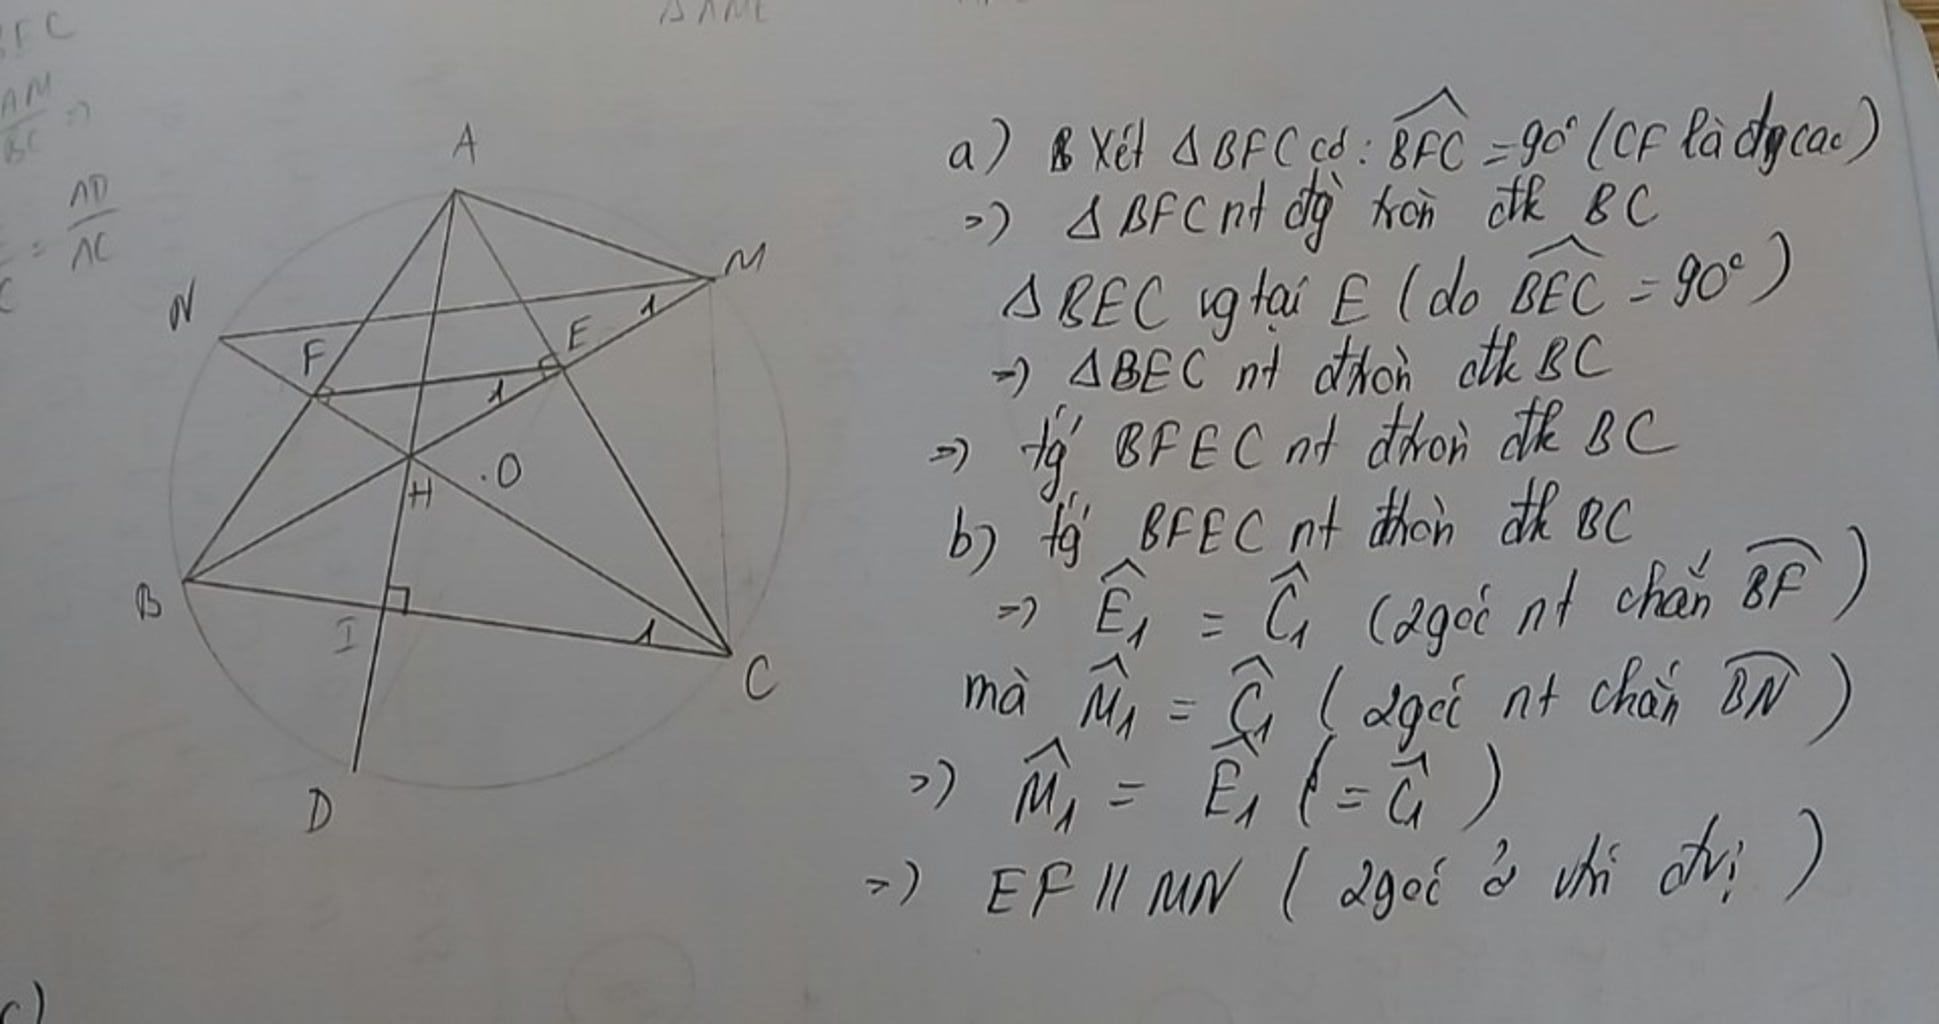 ΔAME
BFC
AM
BC
=>
= AD
AC
A
M
N
1
E
F
1
H
.O
B
I
1
C
D
a) Xét ΔBFC có: BFC = 90° (CF là đg cao)
=> ΔBFC nt đg tròn đk BC
ΔBEC vg tại E (do BEC = 90°)
=> ΔBEC nt đtròn đk BC
=> tg BFEC nt đtròn đk BC
b) tg BFEC nt đtròn đk BC
=> Ê1 = Ĉ1 (2góc nt chắn BF)
mà M̂1 = Ĉ1 (2góc nt chắn BN)
=> M̂1 = Ê1 (= Ĉ1)
=> EF // MN (2góc ở vtrí đvị)
c)